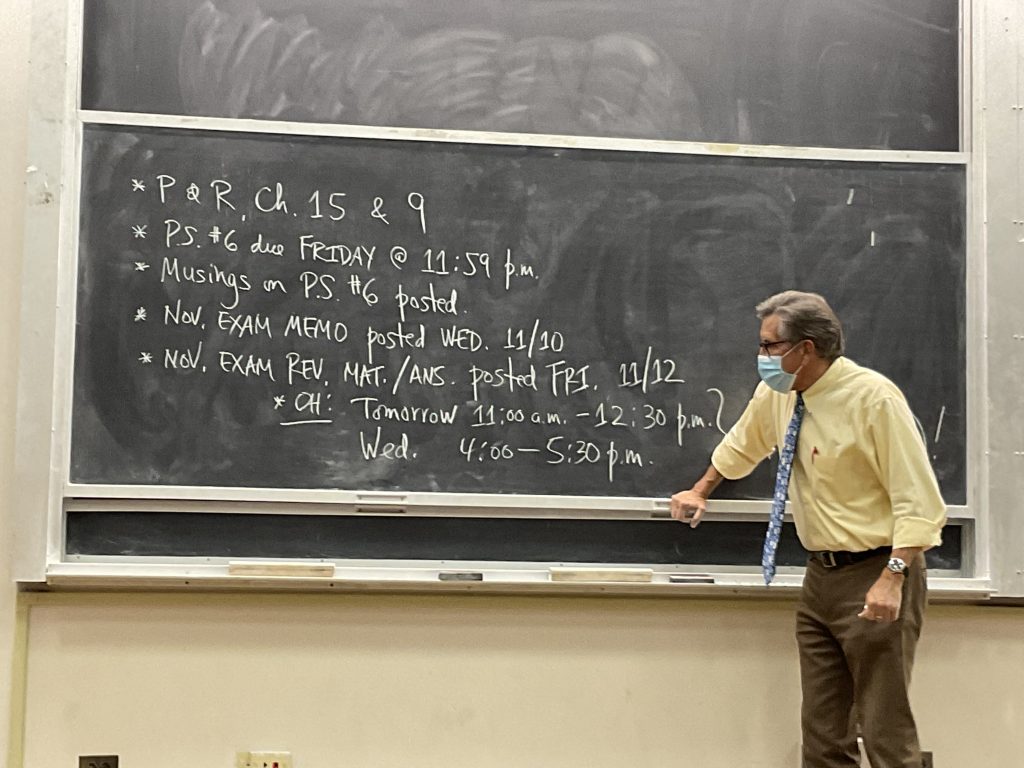 * P & R, Ch. 15 & 9
* P.S. #6 due FRIDAY @ 11:59 p.m.
* Musings on P.S. #6 posted.
* Nov. EXAM MEMO posted WED. 11/10
* Nov. EXAM REV. MAT./ANS. posted FRI. 11/12
* OH: Tomorrow 11:00 a.m. - 12:30 p.m. }
Wed. 4:00 - 5:30 p.m.